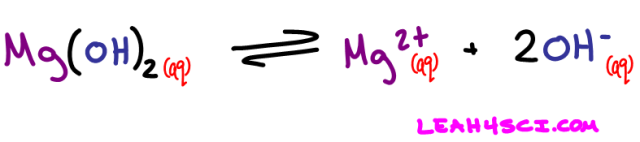 Mg(OH)₂(aq) ⇌ Mg²⁺(aq) + 2OH⁻(aq)
LEAH4SCI.COM